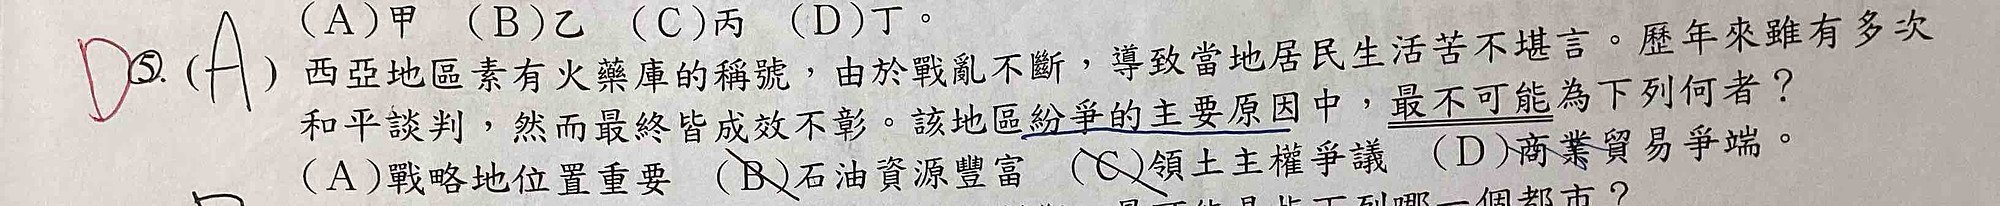 (A)甲 (B)乙 (C)丙 (D)丁。
D ⑤. (A) 西亞地區素有火藥庫的稱號，由於戰亂不斷，導致當地居民生活苦不堪言。歷年來雖有多次
和平談判，然而最終皆成效不彰。該地區紛爭的主要原因中，最不可能為下列何者？
(A)戰略地位置重要 (B)石油資源豐富 (C)領土主權爭議 (D)商業貿易爭端。
下列哪一個都市？